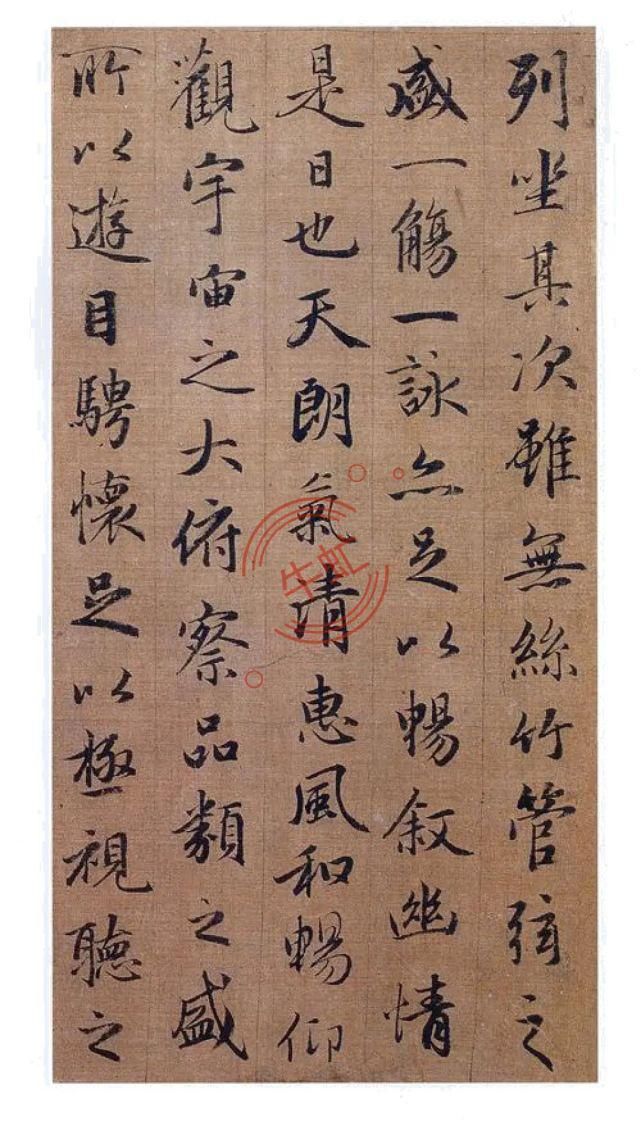 列坐其次雖無絲竹管弦之
盛一觴一詠亦足以暢叙幽情
是日也天朗氣清惠風和暢仰
觀宇宙之大俯察品類之盛
所以遊目騁懷足以極視聽之
牛虹